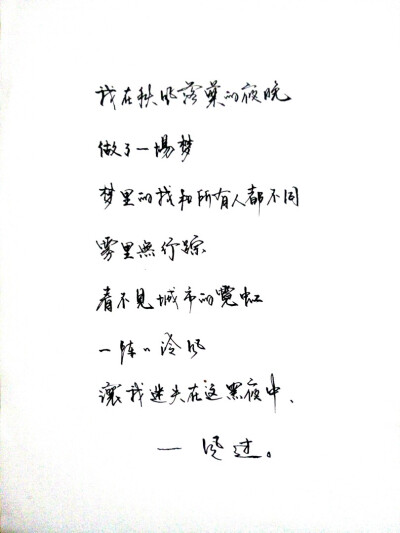 我在秋风落葉的夜晚
做了一場梦
梦里的我和所有人都不同
雾里無行踪
看不见城市的霓虹
一阵〃冷风
讓我迷失在这黑夜中、
一 风过。